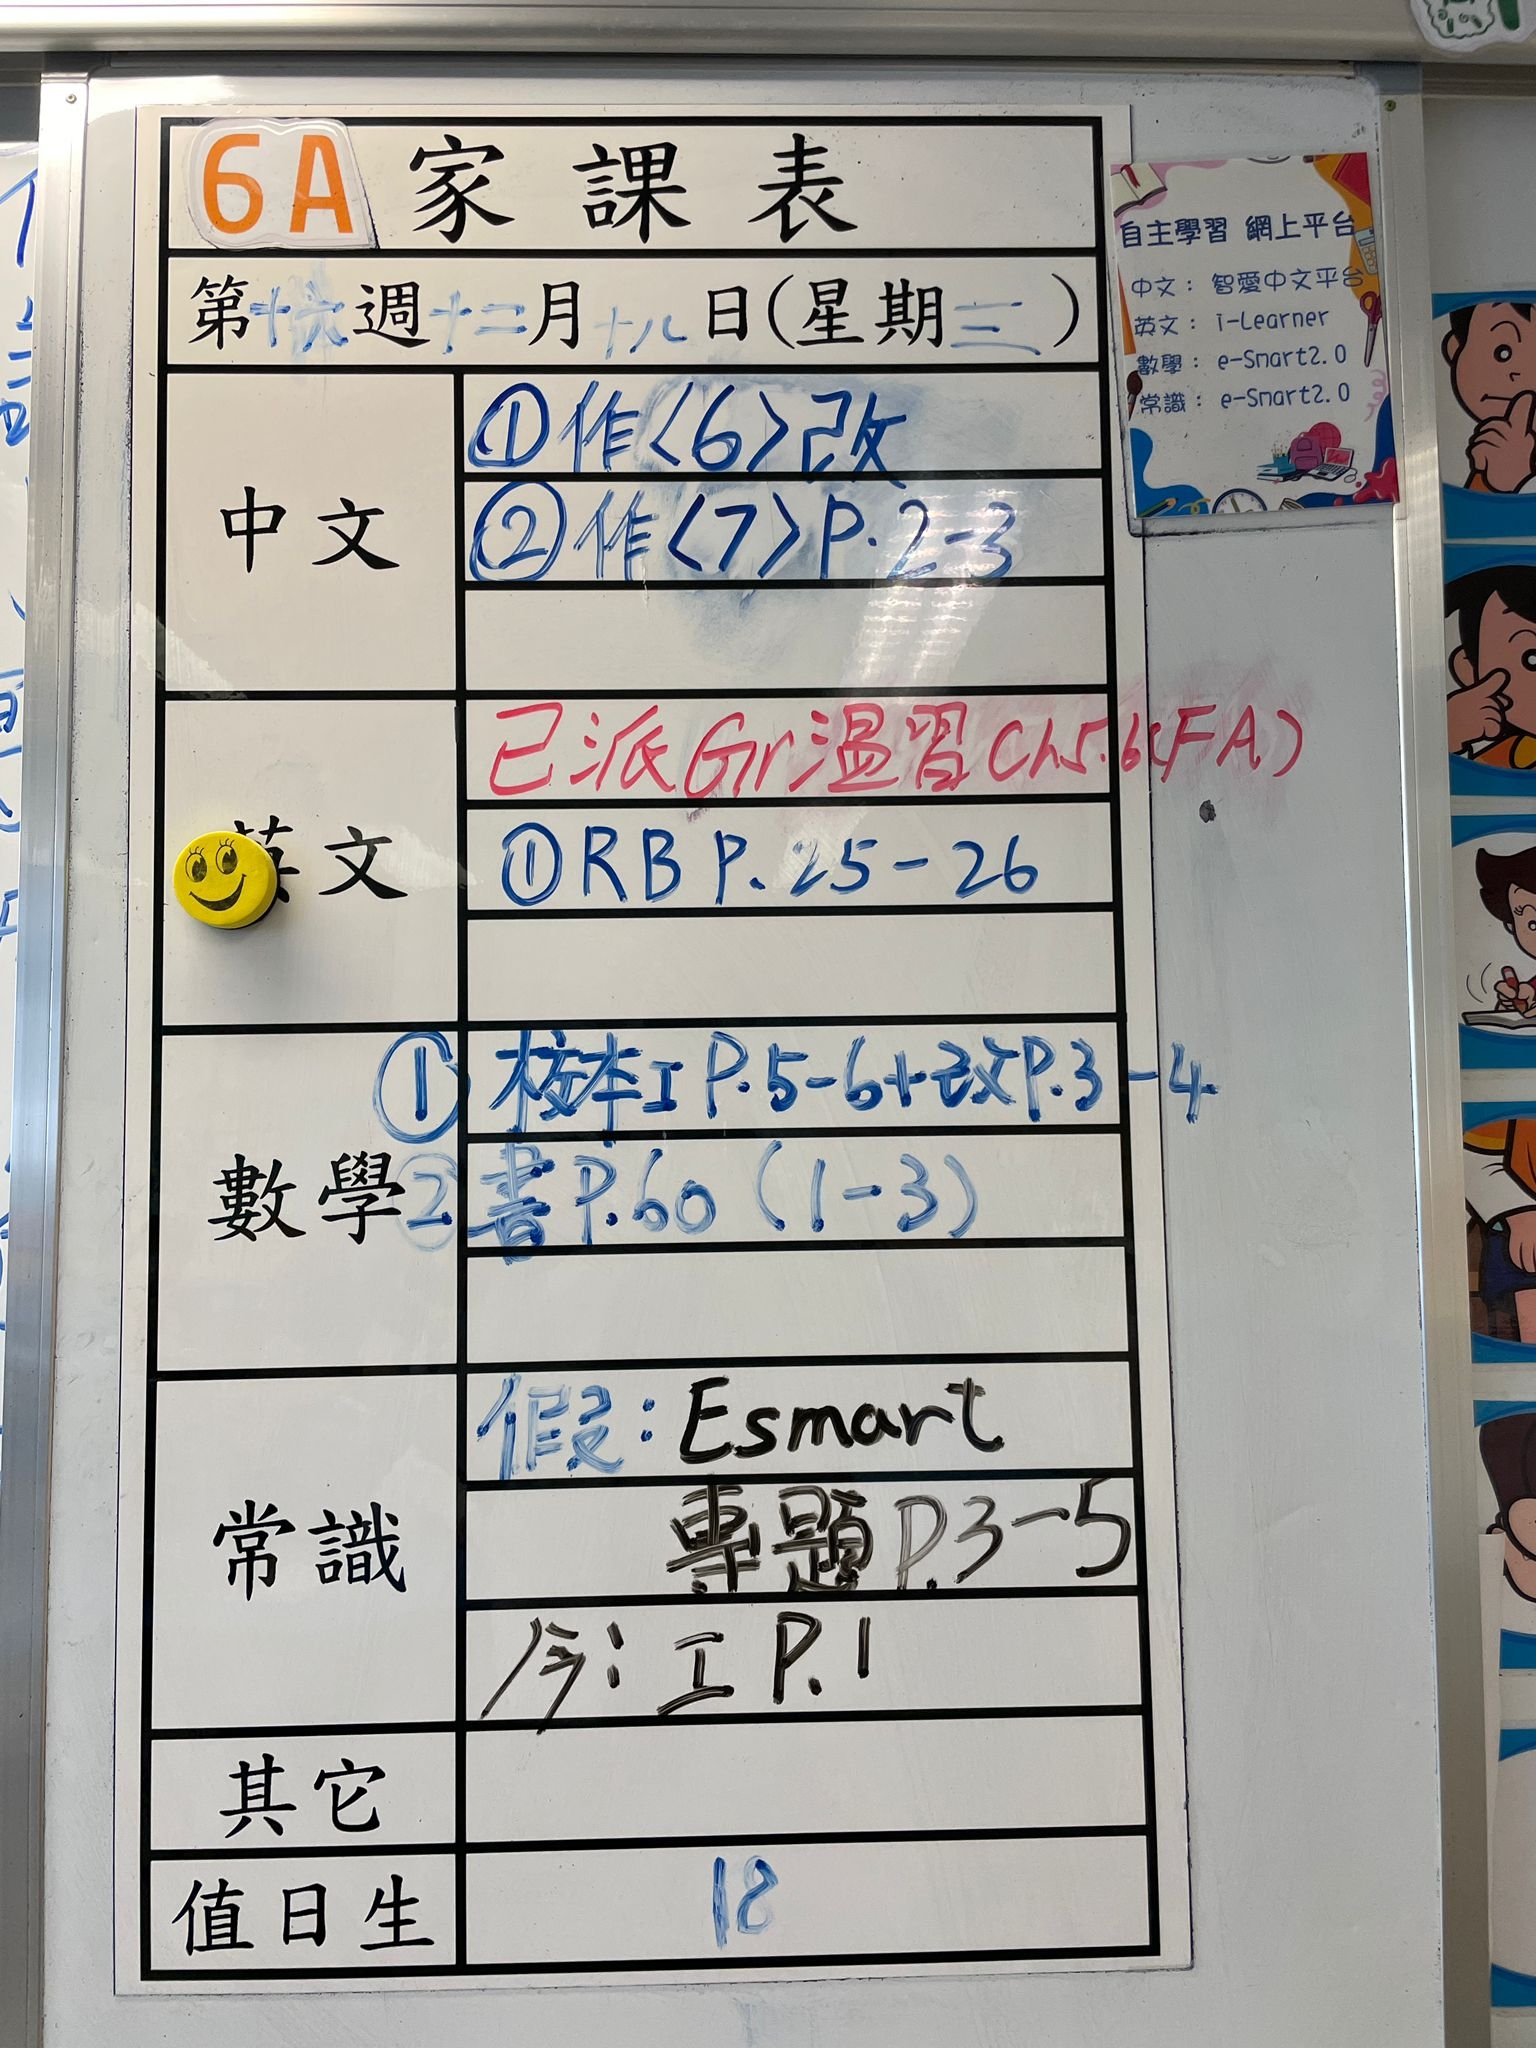 6A 家課表
第十六週十二月十八日(星期三)
中文
①作〈6〉改
②作〈7〉P.2-3
英文
已派Gr溫習Ch5.6(FA)
①RB P.25-26
數學
①校本工P.5-6+改P.3-4
②書P.60(1-3)
常識
假:Esmart
專題P.3-5
今:工P.1
其它
值日生
18
自主學習 網上平台
中文:智愛中文平台
英文:i-Learner
數學:e-Smart2.0
常識:e-Smart2.0